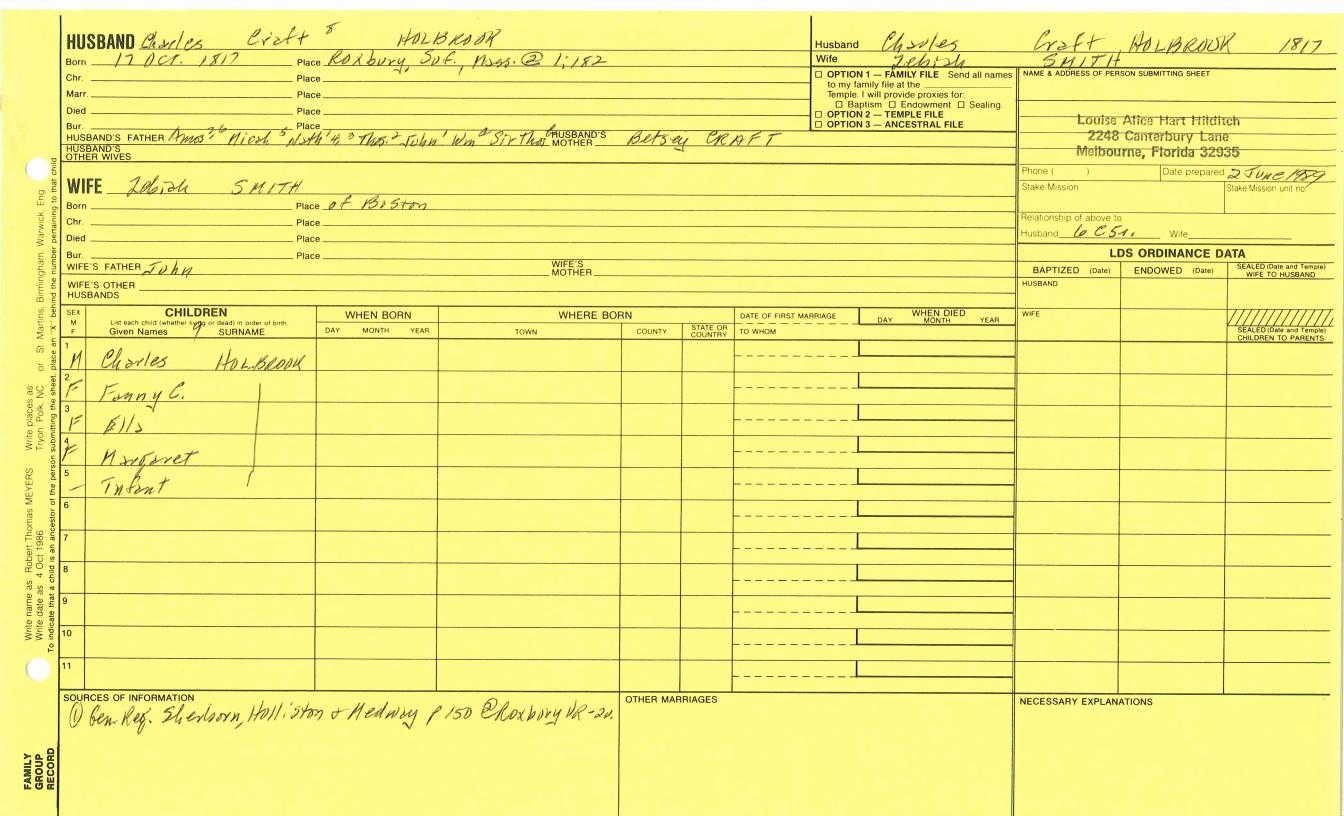 HUSBAND Charles Craft 8 HOLBROOK
Born 17 OCT. 1817 Place Roxbury, Suf., Mass. @ 1:182
Chr. Place
Marr. Place
Died Place
Bur. Place
HUSBAND'S FATHER Amos 7,6 Micah 5 Nath'l 4 3 Thos. 2 John 1 Wm Sir Thos HUSBAND'S MOTHER Betsey CRAFT
HUSBAND'S OTHER WIVES
WIFE Zebiah SMITH
Born Place of Boston
Chr. Place
Died Place
Bur. Place
WIFE'S FATHER John WIFE'S MOTHER
WIFE'S OTHER HUSBANDS
Husband Charles Craft HOLBROOK 1817
Wife Zebiah SMITH
☐ OPTION 1 — FAMILY FILE Send all names
to my family file at the
Temple. I will provide proxies for:
☐ Baptism ☐ Endowment ☐ Sealing.
☐ OPTION 2 — TEMPLE FILE
☐ OPTION 3 — ANCESTRAL FILE
NAME & ADDRESS OF PERSON SUBMITTING SHEET
Louise Alice Hart Hilditch
2248 Canterbury Lane
Melbourne, Florida 32935
Phone ( ) Date prepared 2 June 1989
Stake Mission Stake Mission unit no.
Relationship of above to
Husband 6 C 5r. Wife
LDS ORDINANCE DATA
BAPTIZED (Date) ENDOWED (Date) SEALED (Date and Temple) WIFE TO HUSBAND
HUSBAND
WIFE
SEALED (Date and Temple) CHILDREN TO PARENTS
SEX M F
CHILDREN
List each child (whether living or dead) in order of birth.
Given Names 9 SURNAME
WHEN BORN
DAY MONTH YEAR
WHERE BORN
TOWN COUNTY STATE OR COUNTRY
DATE OF FIRST MARRIAGE
TO WHOM
WHEN DIED
DAY MONTH YEAR
1 M Charles HOLBROOK
2 F Fanny C.
3 F Ella
4 F Margaret
5 – Infant
6
7
8
9
10
11
SOURCES OF INFORMATION
① Gen. Reg. Sherborn, Holliston & Medway p 150 @ Roxbury VR-20.
OTHER MARRIAGES
NECESSARY EXPLANATIONS
Write name as Robert Thomas MEYERS Write places as Tryon, Polk, NC or St. Martins, Birmingham, Warwick, Eng
Write date as 4 Oct 1986
To indicate that a child is an ancestor of the person submitting the sheet, place an "X" behind the number pertaining to that child
FAMILY
GROUP
RECORD